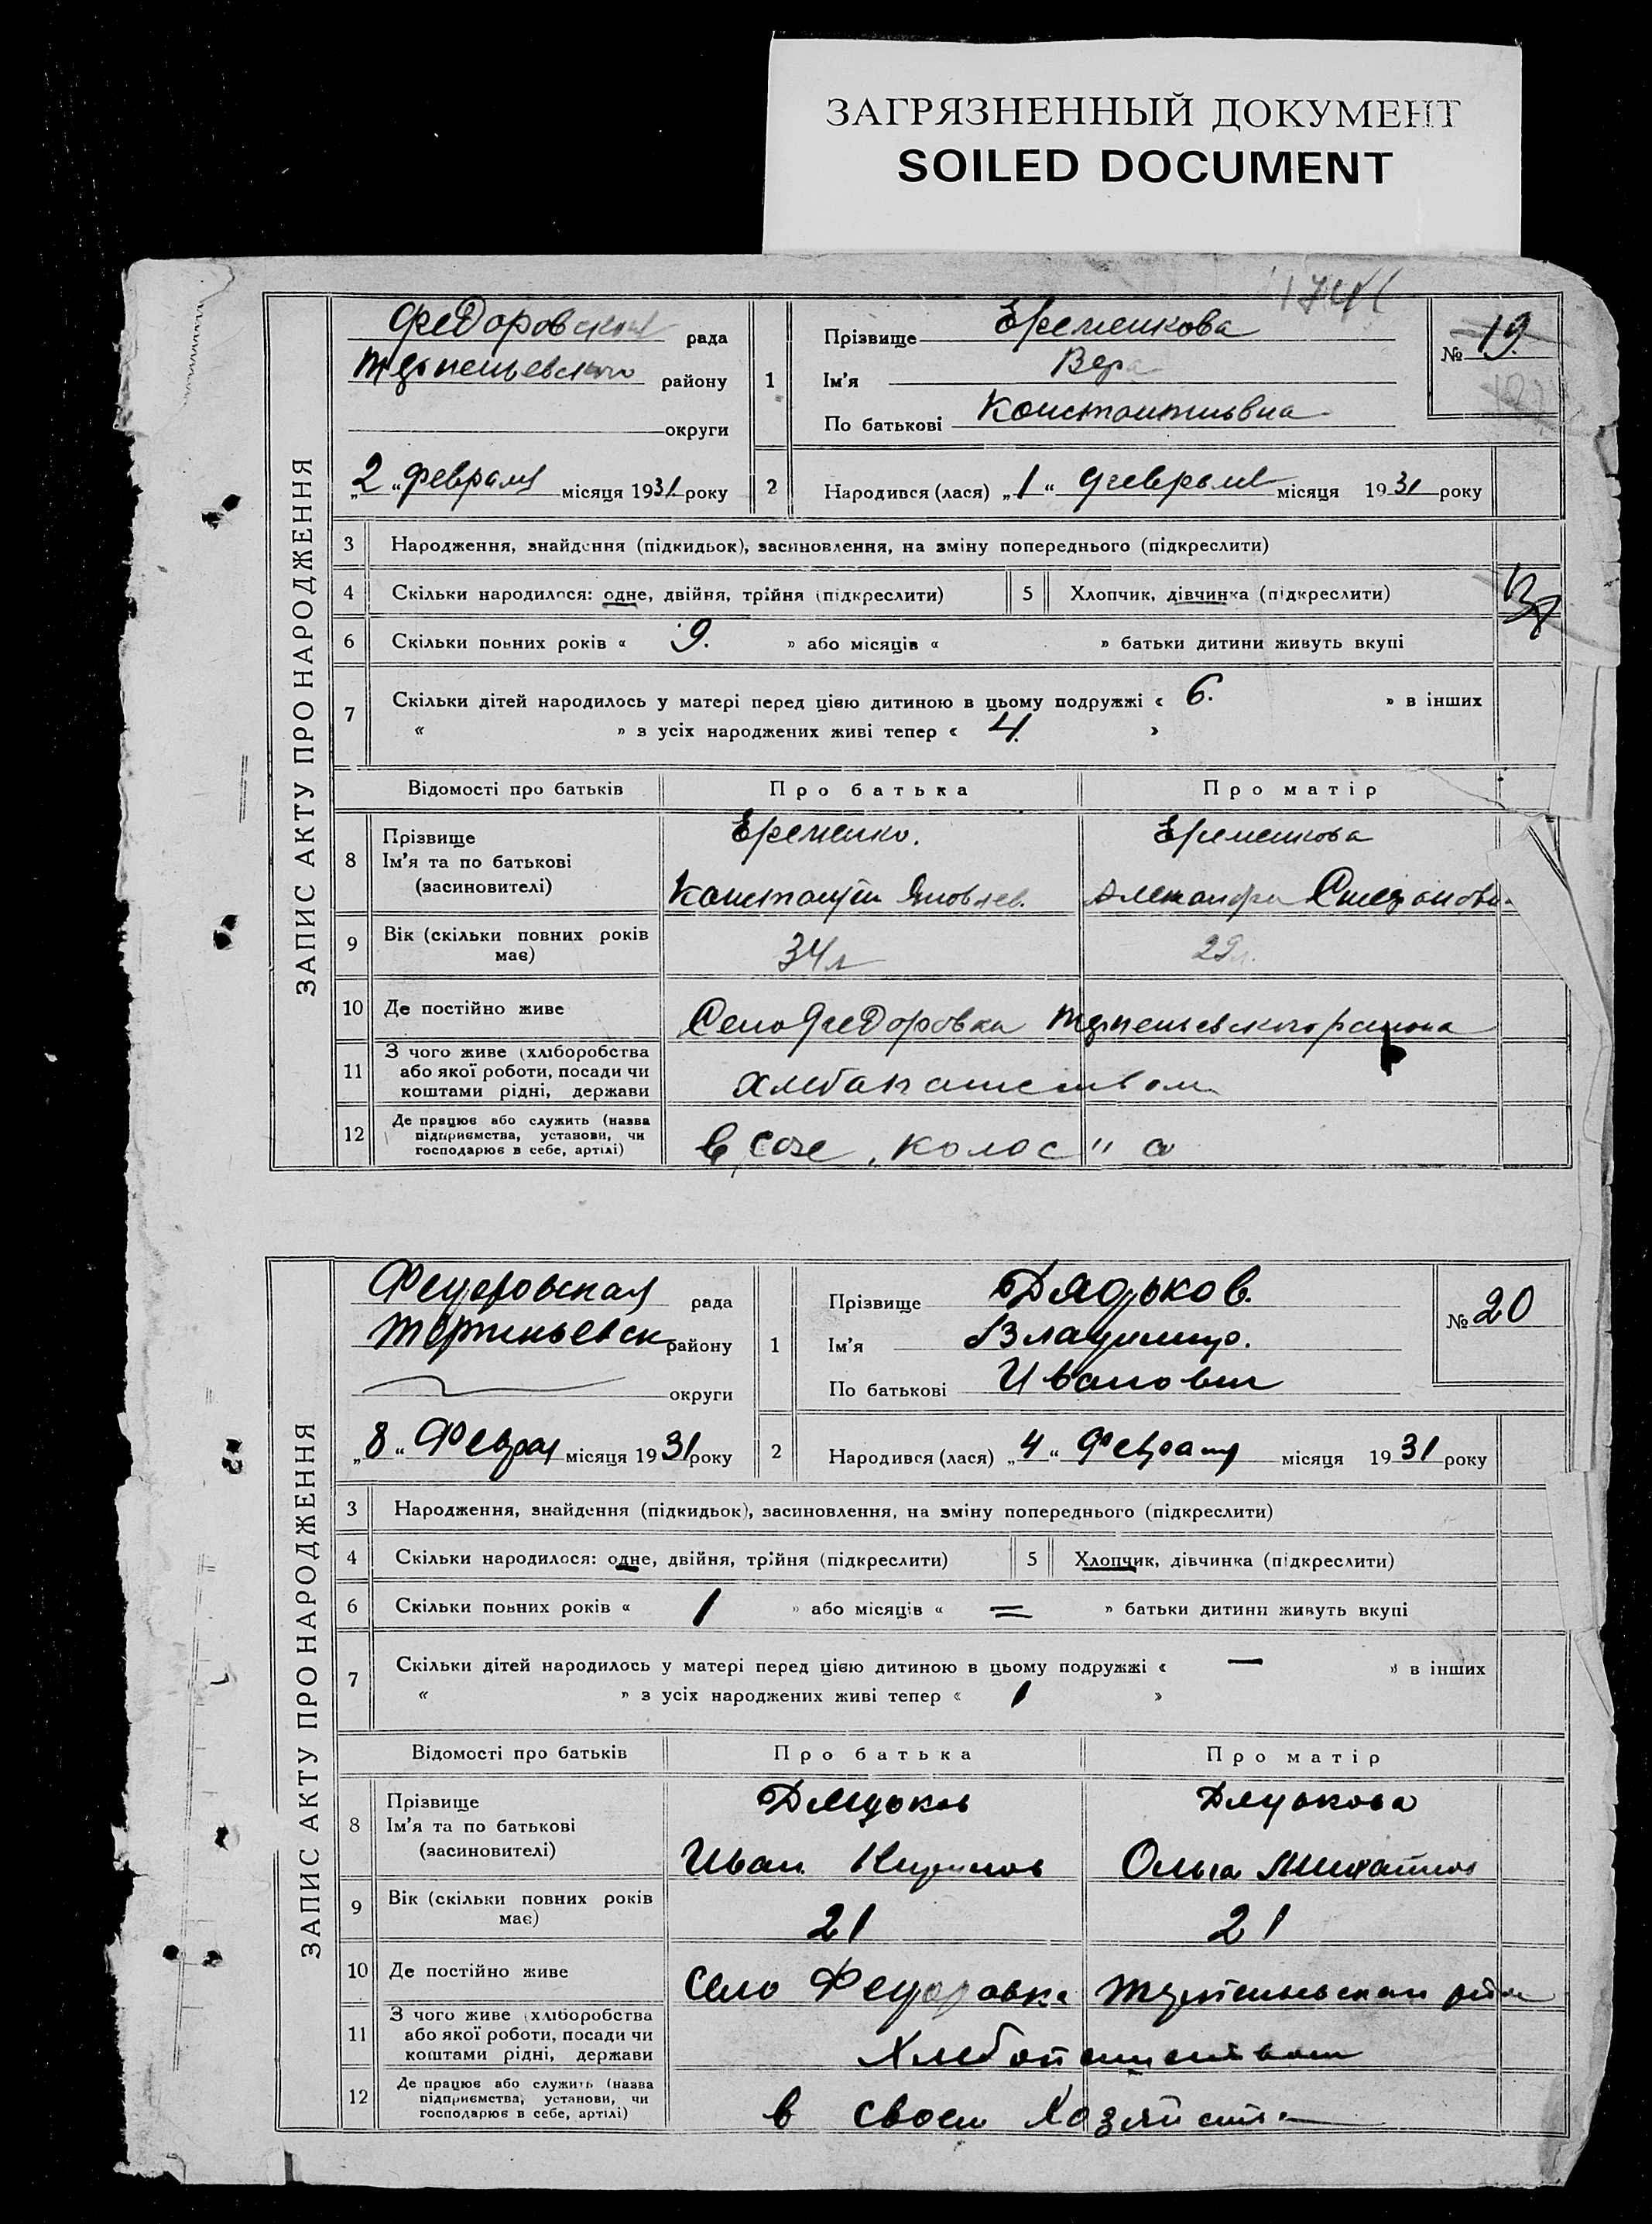 ЗАГРЯЗНЕННЫЙ ДОКУМЕНТ
SOILED DOCUMENT
ЗАПИС АКТУ ПРО НАРОДЖЕННЯ
Федоровской рада
Терпеньевского району
округи
„2“ февраля місяця 1931 року
1 Прізвище Еременкова
Ім'я Вера
По батькові Константиновна
№ 19
2 Народився (лася) „1“ февраля місяця 1931 року
3 Народження, знайдення (підкидьок), засиновлення, на зміну попереднього (підкреслити)
4 Скільки народилося: одне, двійня, трійня (підкреслити) 5 Хлопчик, дівчинка (підкреслити)
6 Скільки повних років « 9. » або місяців « » батьки дитини живуть вкупі
7 Скільки дітей народилось у матері перед цією дитиною в цьому подружжі « 6. » в інших
« » з усіх народжених живі тепер « 4. »
Відомості про батьків Про батька Про матір
8 Прізвище Еременко. Еременкова
Ім'я та по батькові
(засиновителі) Константин Яковлев. Александра
9 Вік (скільки повних років має) 34 л 29 л.
10 Де постійно живе Село Федоровка Терпеньевского района
11 З чого живе (хліборобства або якої роботи, посади чи коштами рідні, держави Хлебопашеством
12 Де працює або служить (назва підприємства, установи, чи господарює в себе, артілі) в Созе „Колос"
ЗАПИС АКТУ ПРО НАРОДЖЕННЯ
Федоровская рада
Терпеньевск району
округи
„8“ Феврал місяця 1931 року
1 Прізвище Дядьков.
Ім'я Владимир.
По батькові Иванович
№ 20
2 Народився (лася) „4“ Февраля місяця 1931 року
3 Народження, знайдення (підкидьок), засиновлення, на зміну попереднього (підкреслити)
4 Скільки народилося: одне, двійня, трійня (підкреслити) 5 Хлопчик, дівчинка (підкреслити)
6 Скільки повних років « 1 » або місяців « = » батьки дитини живуть вкупі
7 Скільки дітей народилось у матері перед цією дитиною в цьому подружжі « — » в інших
« » з усіх народжених живі тепер « 1 »
Відомості про батьків Про батька Про матір
8 Прізвище Дядьков Дядькова
Ім'я та по батькові
(засиновителі) Иван Ольга Михайлов
9 Вік (скільки повних років має) 21 21
10 Де постійно живе Село Федоровка
11 З чого живе (хліборобства або якої роботи, посади чи коштами рідні, держави Хлебопашеством
12 Де працює або служить (назва підприємства, установи, чи господарює в себе, артілі) в своем